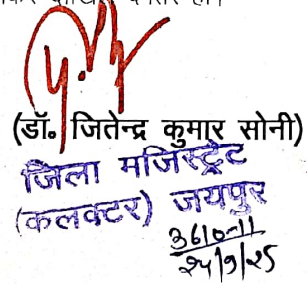 (डॉ. जितेन्द्र कुमार सोनी)
जिला मजिस्ट्रेट
(कलक्टर) जयपुर
3610-11